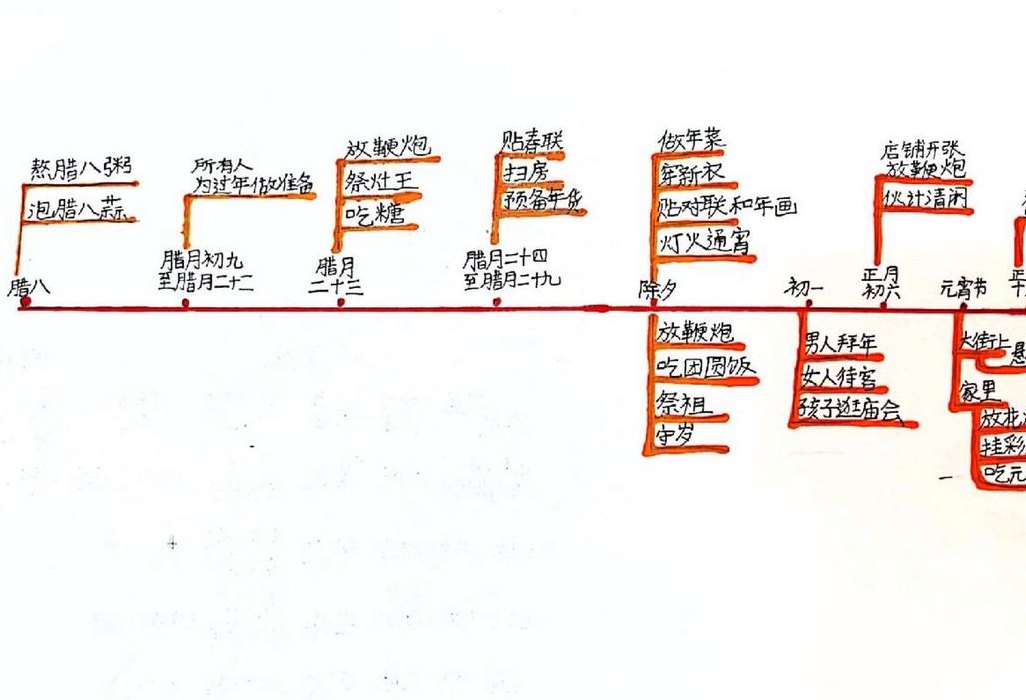 熬腊八粥
泡腊八蒜
腊八
所有人
为过年做准备
腊月初九
至腊月二十二
放鞭炮
祭灶王
吃糖
腊月
二十三
贴春联
扫房
预备年货
腊月二十四
至腊月二十九
做年菜
穿新衣
贴对联和年画
灯火通宵
除夕
放鞭炮
吃团圆饭
祭祖
守岁
初一
男人拜年
女人待客
孩子逛庙会
店铺开张
放鞭炮
伙计清闲
正月
初六
元宵节
大街上
悬
家里
放花
挂彩
吃元
正
十